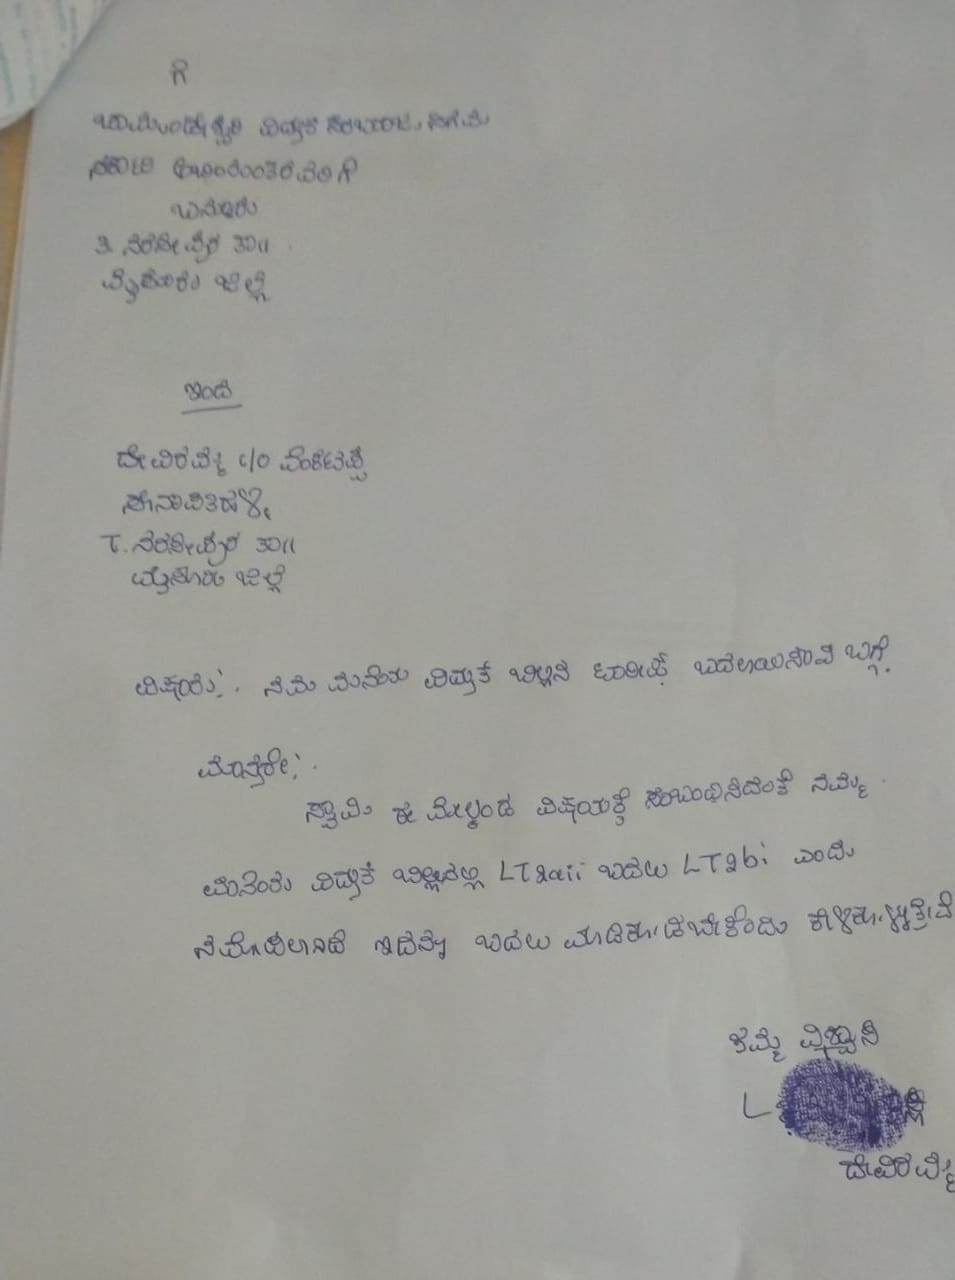 ಗೆ
ಚಾಮುಂಡೇಶ್ವರಿ ವಿದ್ಯುತ್ ಸರಬರಾಜು ನಿಗಮ
ಬನ್ನೂರು
ತಿ. ನರಸೀಪುರ ತಾ॥
ಮೈಸೂರು ಜಿಲ್ಲೆ
ಇಂದ
ದೇವಿರಮ್ಮ c/o ವೆಂಕಟಪ್ಪ
ಸೇನಾಪತಿಹಳ್ಳಿ
T. ನರಸೀಪುರ ತಾ॥
ಮೈಸೂರು ಜಿಲ್ಲೆ
ವಿಷಯ:. ನಮ್ಮ ಮನೆಯ ವಿದ್ಯುತ್ ಬಿಲ್ಲಿನ ಟಾರೀಫ್ ಬದಲಾಯಿಸುವ ಬಗ್ಗೆ.
ಮಾನ್ಯರೇ:.
ಸ್ವಾಮಿ ಈ ಮೇಲ್ಕಂಡ ವಿಷಯಕ್ಕೆ ಸಂಬಂಧಿಸಿದಂತೆ ನಮ್ಮ
ಮನೆಯ ವಿದ್ಯುತ್ ಬಿಲ್ಲಿನಲ್ಲಿ LT2aii ಬದಲು LT2bi ಎಂದು
ನಮೂದಿಲಾಗಿದೆ ಇದನ್ನು ಬದಲು ಮಾಡಿಕೊಡಬೇಕೆಂದು ಕೇಳಿಕೊಳ್ಳುತ್ತೇವೆ
ತಮ್ಮ ವಿಶ್ವಾಸಿ
L
ದೇವಿರಮ್ಮ